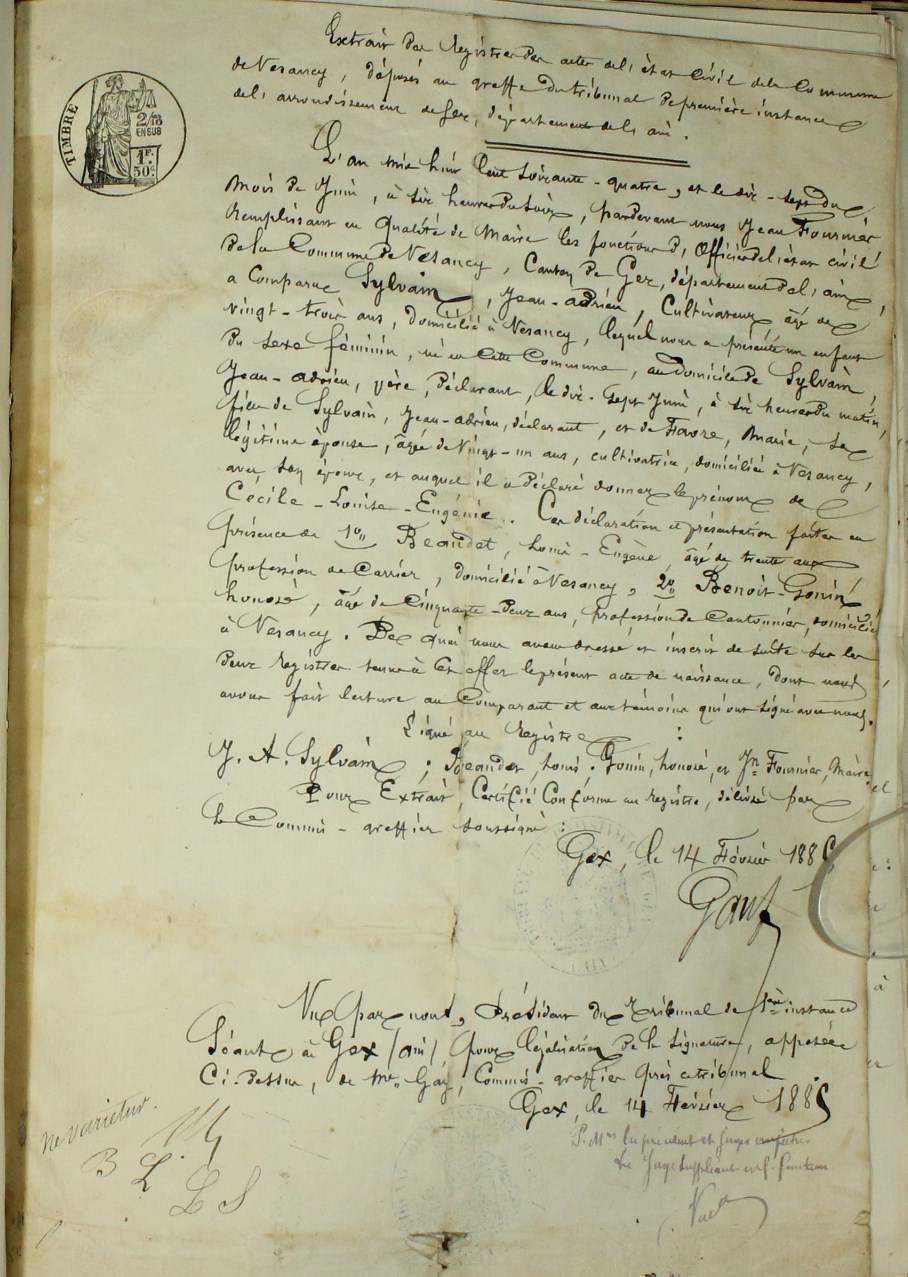 TIMBRE
2/10
EN SUS
1F.
50c.
Extrait des registres des actes de l'état civil de la Commune
de Vesancy, déposés au greffe du tribunal de première instance
de l'arrondissement de Gex, département de l'ain.
L'an mil huit cent soixante-quatre, et le dix-sept du
mois de Juin, à six heures du soir, pardevant nous Jean Fournier
remplissant en qualité de Maire les fonctions d'Officier de l'état civil
de la Commune de Vesancy, Canton de Gex, département de l'ain,
a comparu Sylvain, Jean-adrien, Cultivateur, âgé de
vingt-trois ans, domicilié à Vesancy, lequel nous a présenté un enfant
du sexe féminin, né en cette Commune, au domicile de Sylvain,
Jean-adrien, père, déclarant, le dix-sept Juin, à six heures du matin,
fille de Sylvain, Jean-adrien, déclarant, et de Favre, Marie, sa
légitime épouse, âgée de vingt-un ans, cultivatrice, domiciliée à Vesancy,
avec son époux, et auquel il a déclaré donner le prénom de
Cécile-Louise-Eugénie. Ces déclaration et présentation faites en
présence de 1° Beaudet, Louis-Eugène, âgé de trente ans
profession de Carrier, domicilié à Vesancy, 2° Benoit-Gonin
honoré, âgé de Cinquante-deux ans, profession de Cantonnier, domicilié
à Vesancy. De quoi nous avons dressé et inscrit de suite sur les
deux registres tenus à cet effet le présent acte de naissance, dont nous
avons fait lecture au Comparant et aux témoins qui ont signé avec nous.
Signé au registre :
J. A. Sylvain ; Beaudet, Louis. Gonin, honoré, et Jn Fournier, Maire.
Pour Extrait, Certifié Conforme au registre, délivré par
le Commis-greffier soussigné :
Gex, le 14 Février 1885
Gay
Vu par nous, Président du Tribunal de 1ère instance
Séant à Gex (ain), pour légalisation de la signature, apposée
Ci-dessus, de Mr Gay, Commis-greffier près ce tribunal.
Gex, le 14 Février 1885
P. Mrs les président et Juges empêchés
Le Juge suppléant
ne varietur.
B L
L S